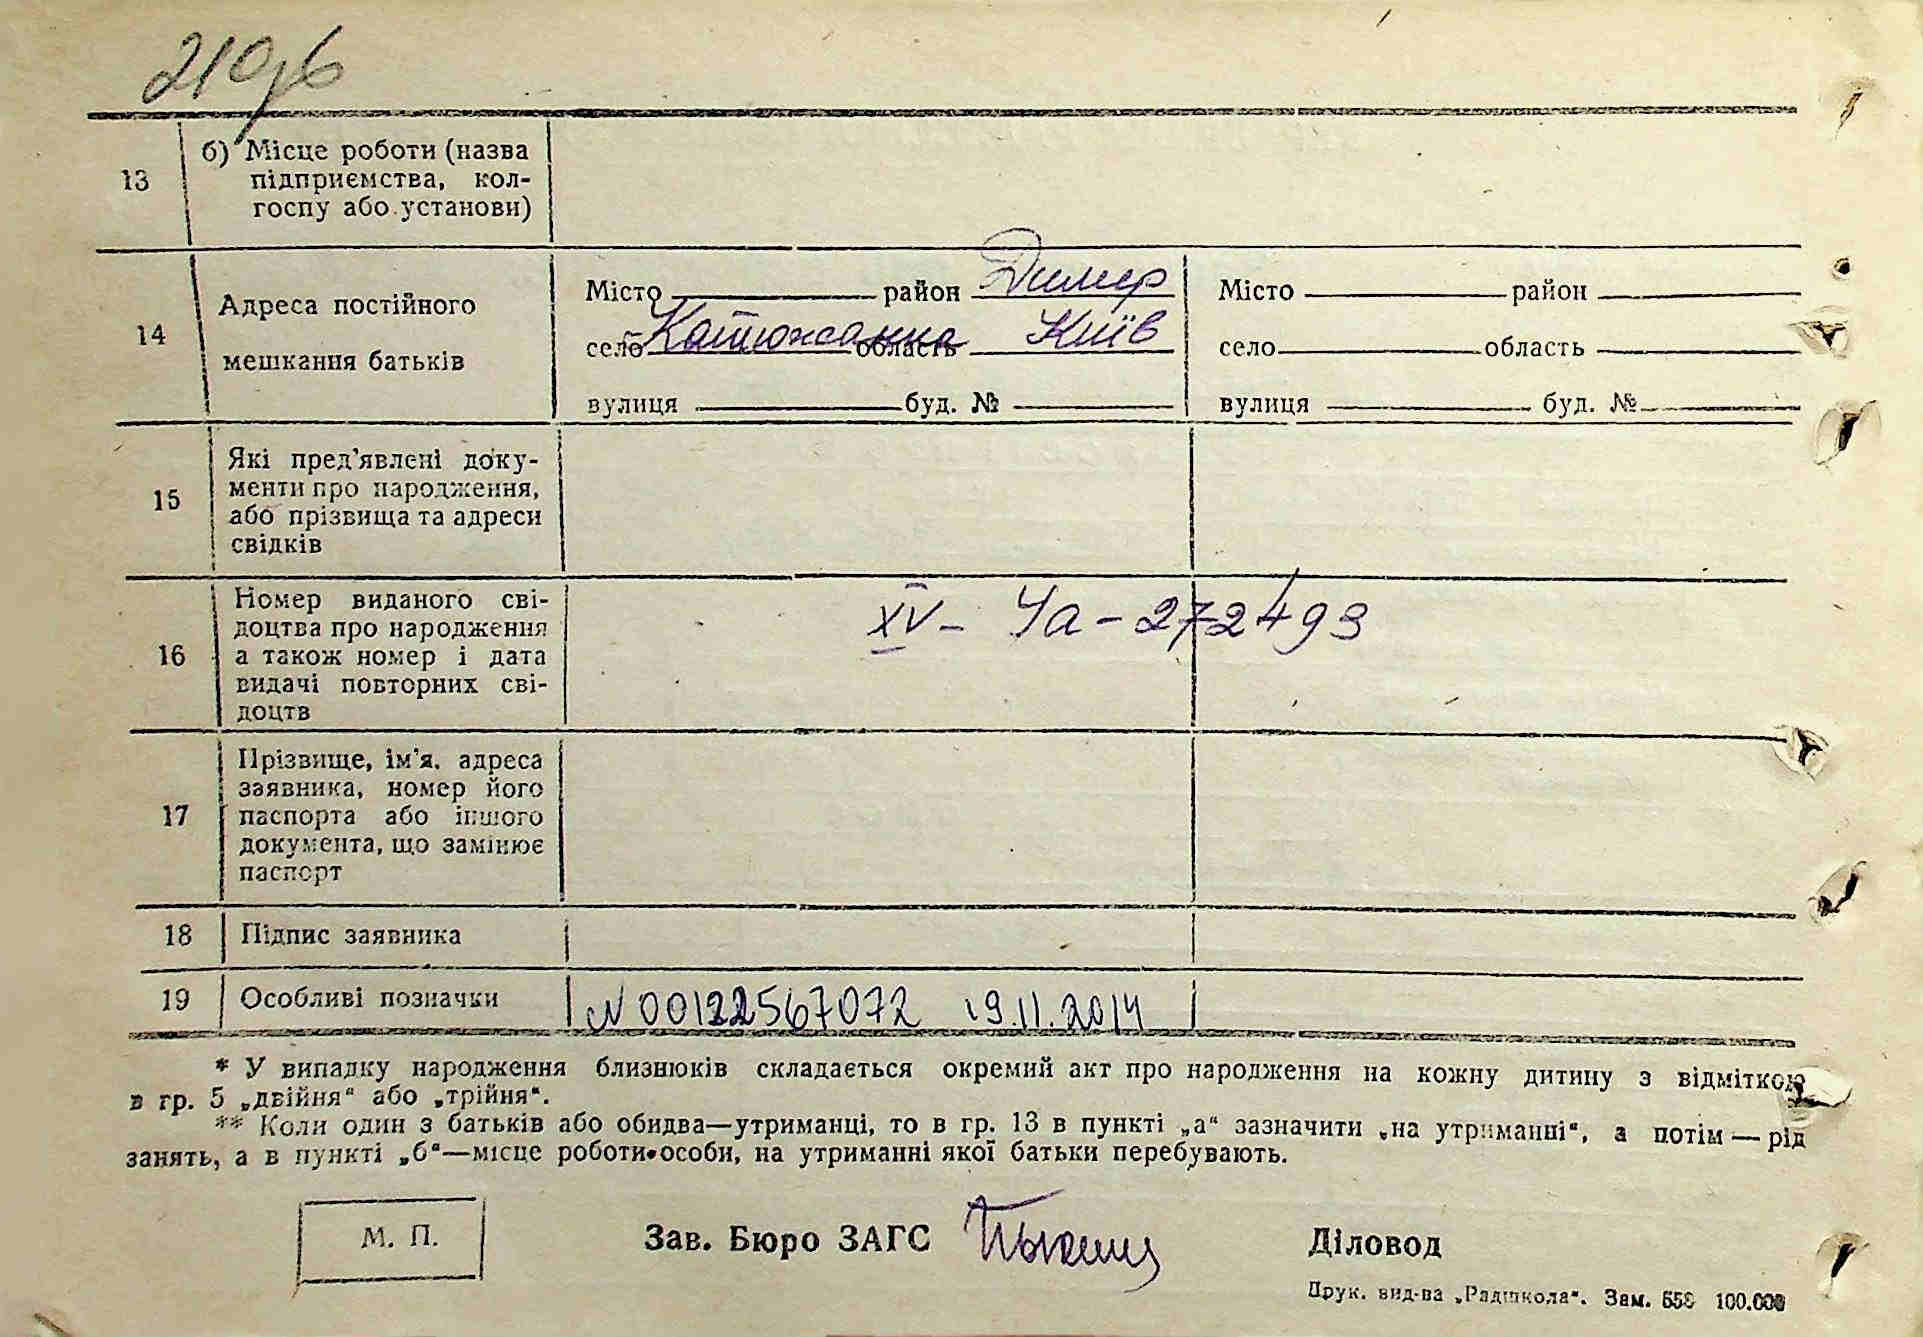 219 об
13
б) Місце роботи (назва
підприємства, кол-
госпу або установи)
14
Адреса постійного
мешкання батьків
Місто район Димер
село Катюжанка область Київ
вулиця буд. №
Місто район
село область
вулиця буд. №
15
Які пред'явлені доку-
менти про народження,
або прізвища та адреси
свідків
16
Номер виданого сві-
доцтва про народження
а також номер і дата
видачі повторних сві-
доцтв
XV - Уа - 272493
17
Прізвище, ім'я, адреса
заявника, номер його
паспорта або іншого
документа, що замінює
паспорт
18
Підпис заявника
19
Особливі позначки
N 00122567072 19.11.2014
* У випадку народження близнюків складається окремий акт про народження на кожну дитину з відміткою
в гр. 5 „двійня“ або „трійня“.
** Коли один з батьків або обидва—утриманці, то в гр. 13 в пункті „а“ зазначити „на утриманні“, а потім — рід
занять, а в пункті „б“—місце роботи особи, на утриманні якої батьки перебувають.
М. П.
Зав. Бюро ЗАГС
Діловод
Друк. вид-ва „Радшкола“. Зам. 658 100.000